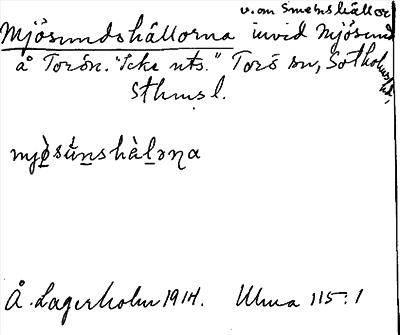 v. om Smenshällor
Mjösundshällorna invid Mjösund
å Torön. "Icke uts." Torö sn, Sotholms hd,
Sthms l.
mjò̠sún̠shàl̠ən̠a
Å. Lagerholm 1914. Ulma 115:1